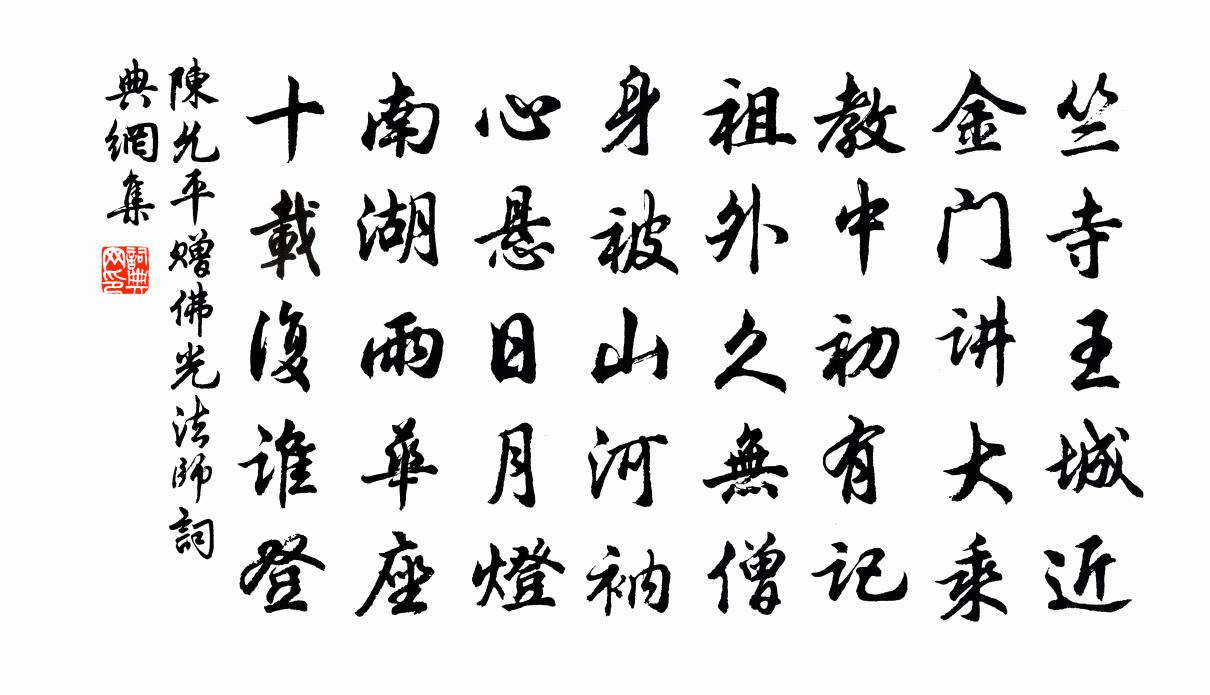 竺寺王城近
金门讲大乘
教中初有记
祖外久無僧
身被山河衲
心悬日月燈
南湖雨華座
十載復谁登
陳允平赠佛光法師詞
典網集
詞典
网印